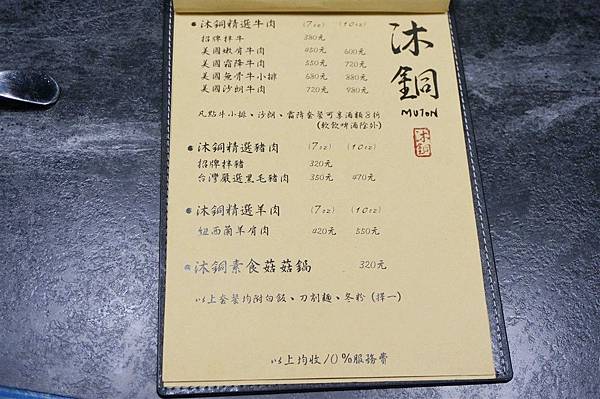 沐銅精選牛肉 (7oz) (10oz)
招牌拌牛 380元
美國嫩肩牛肉 450元 600元
美國霜降牛肉 550元 720元
美國無骨牛小排 680元 880元
美國沙朗牛肉 720元 980元
凡點牛小排、沙朗、霜降套餐可享酒類8折
(軟飲啤酒除外)
沐銅精選豬肉 (7oz) (10oz)
招牌拌豬 320元
台灣嚴選黑毛豬肉 350元 470元
沐銅精選羊肉 (7oz) (10oz)
紐西蘭羊肩肉 420元 550元
沐銅素食菇菇鍋 320元
以上套餐均附白飯、刀削麵、冬粉(擇一)
以上均收10%服務費
沐銅
MUTON
沐銅